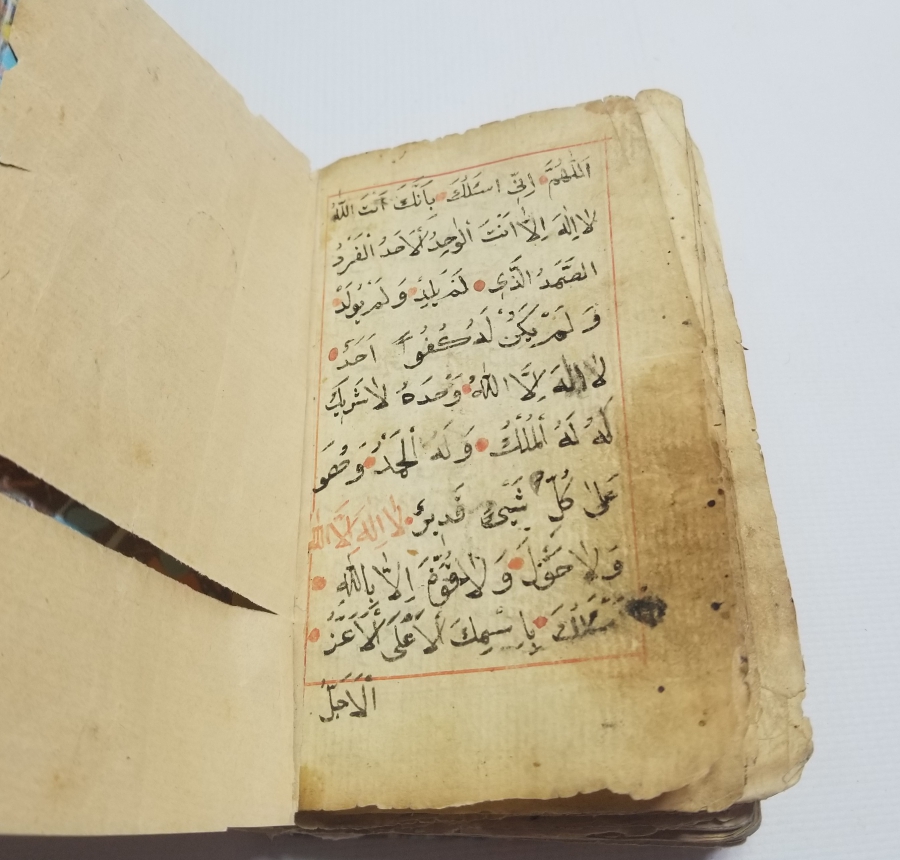 اَللّٰهُمَّ اِنّٖى اَسْئَلُكَ بِاَنَّكَ اَنْتَ اللّٰهُ
لَا اِلٰهَ اِلَّا اَنْتَ الْوٰحِدُ الْاَحَدُ الْفَرْدُ
الصَّمَدُ الَّذٖى لَمْ يَلِدْ وَلَمْ يُولَدْ
وَلَمْ يَكُنْ لَهُ كُفُواً اَحَدٌ
لَا اِلٰهَ اِلَّا اللّٰهُ وَحْدَهُ لَا شَرٖيكَ
لَهُ لَهُ الْمُلْكُ وَلَهُ الْحَمْدُ وَهُوَ
عَلٰى كُلِّ شَيْئٍ قَدٖيرٌ لَا اِلٰهَ اِلَّا اللّٰه
وَلَا حَوْلَ وَلَا قُوَّةَ اِلَّا بِاللّٰهِ
بِاِسْمِكَ الْاَعْلَى الْاَعَزِّ
اَلْاَجَلِّ